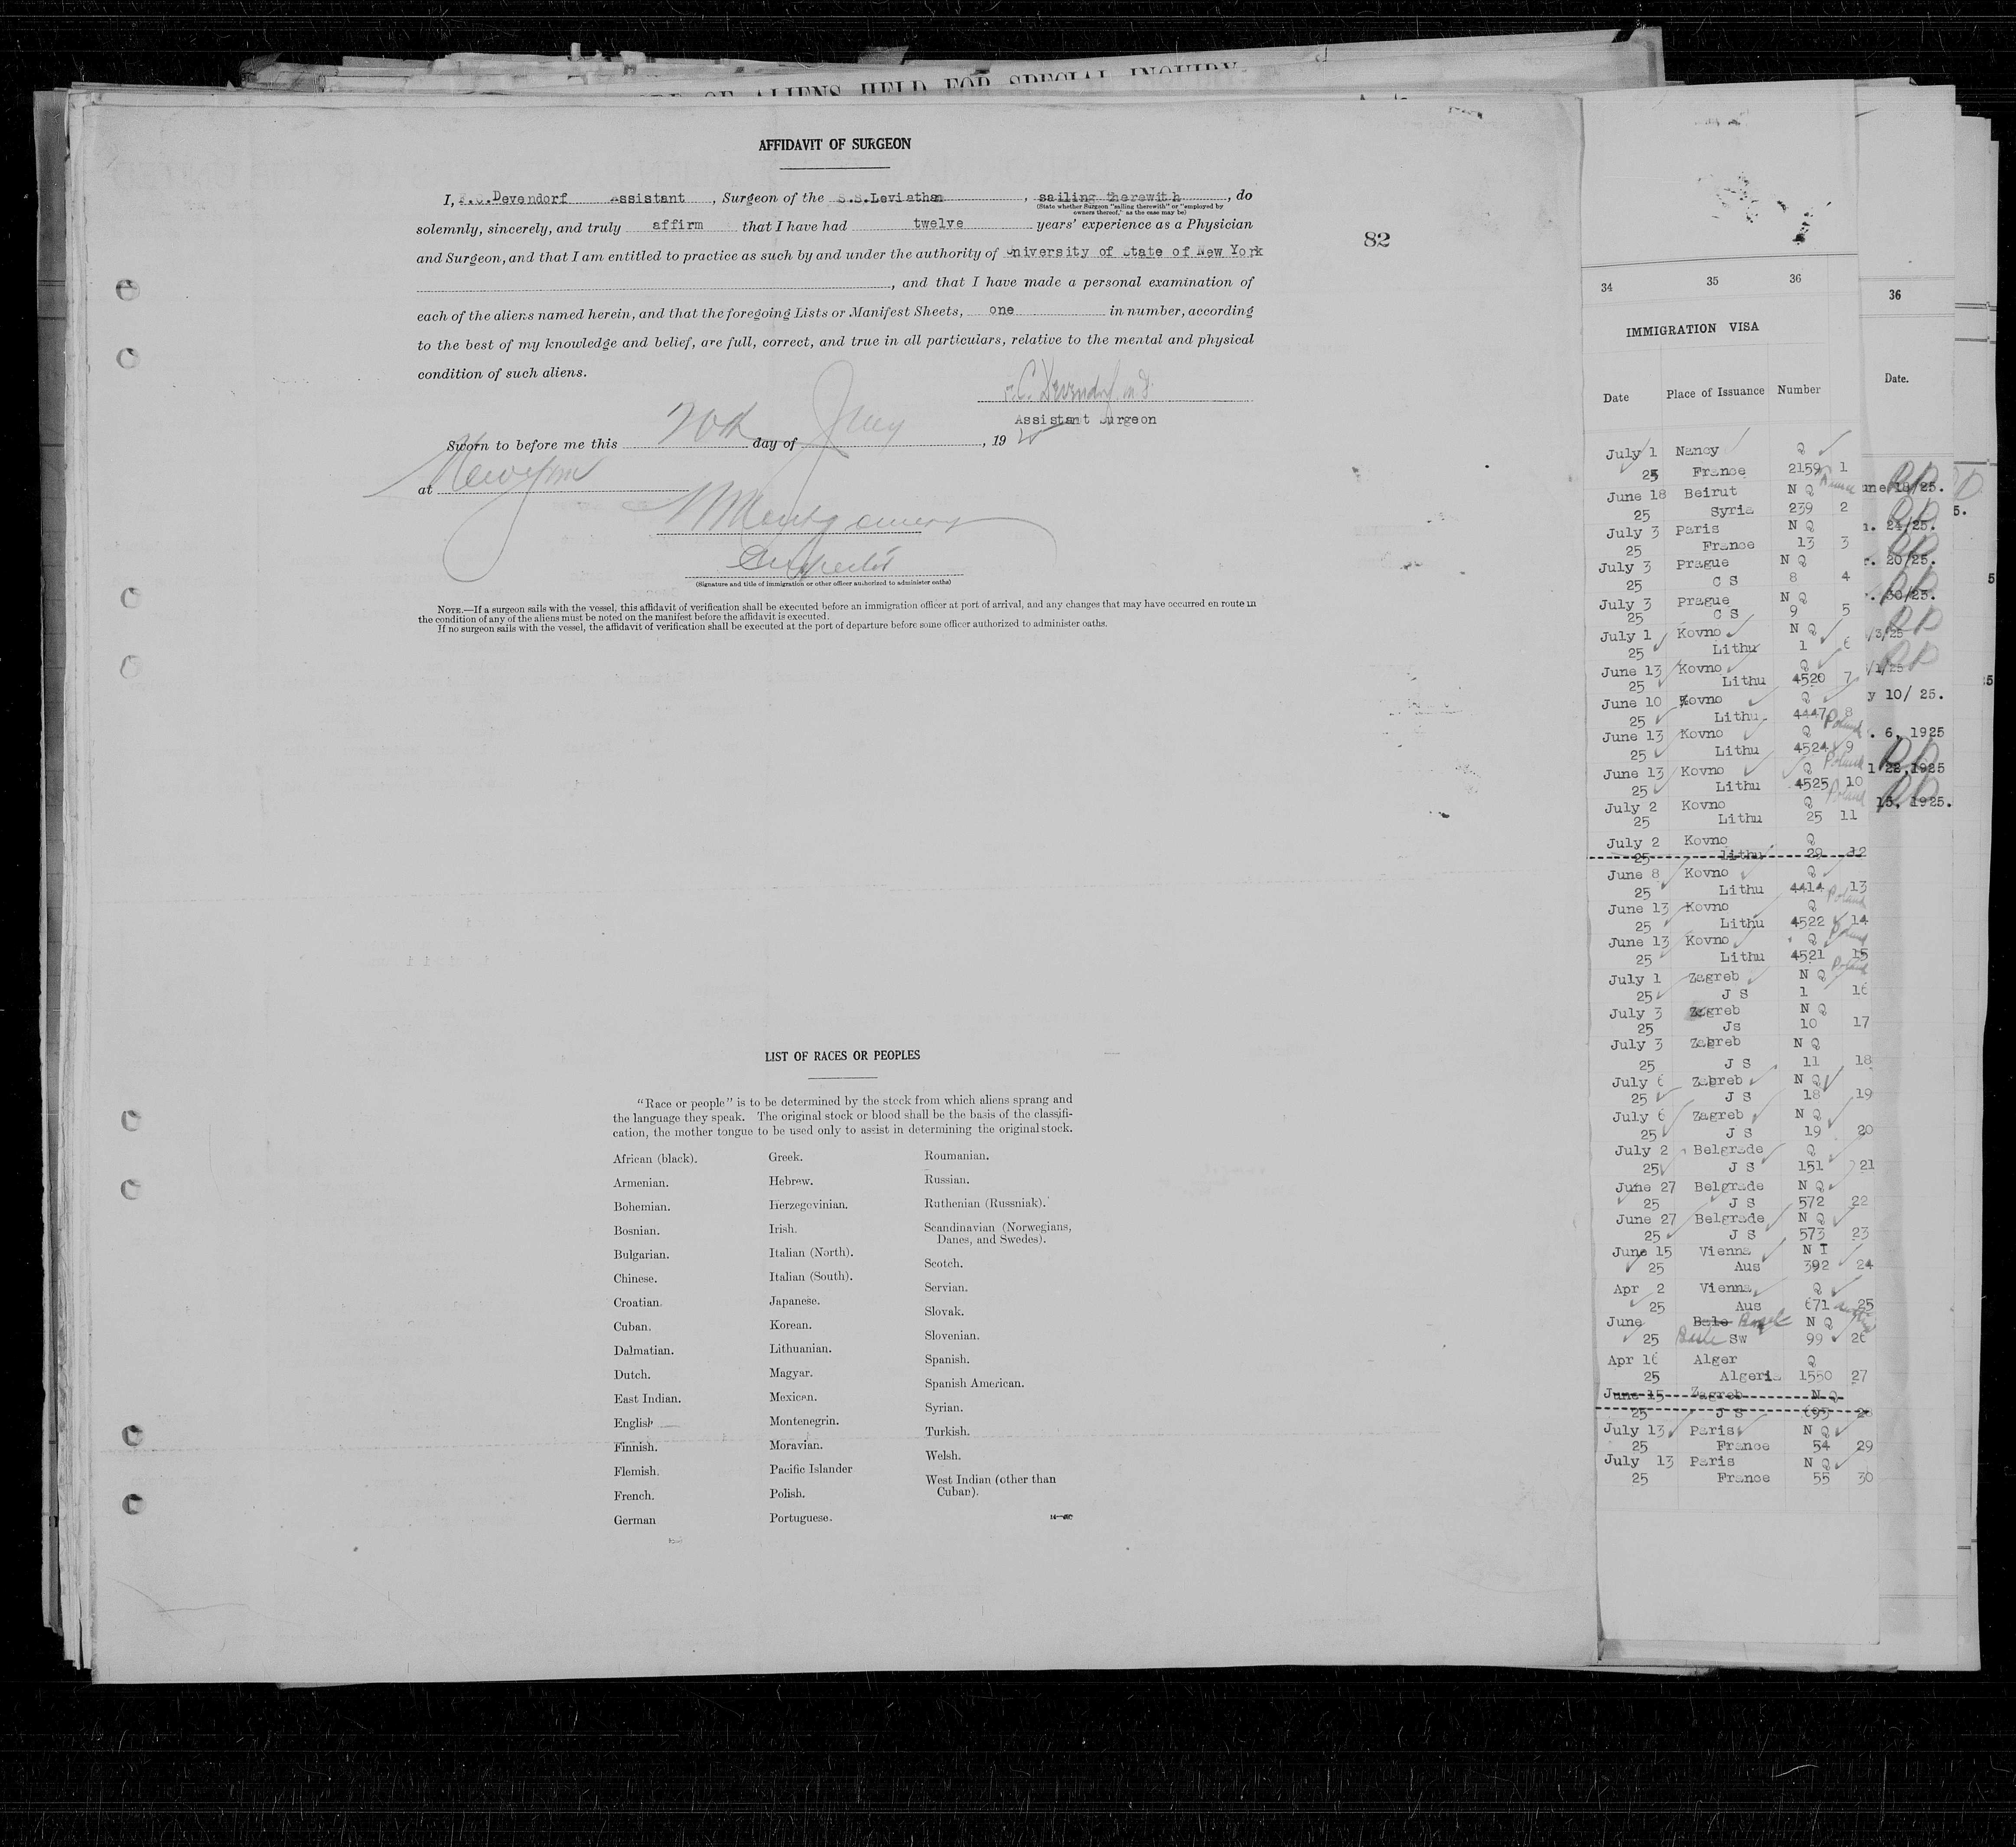 OF ALIENS HELD FOR SPECIAL INQUIRY
AFFIDAVIT OF SURGEON
I, F.C.Devendorf Assistant, Surgeon of the S.S.Leviathan, sailing therewith, do
(State whether Surgeon "sailing therewith" or "employed by
owners thereof," as the case may be)
solemnly, sincerely, and truly affirm that I have had twelve years' experience as a Physician
and Surgeon, and that I am entitled to practice as such by and under the authority of University of State of New York
, and that I have made a personal examination of
each of the aliens named herein, and that the foregoing Lists or Manifest Sheets, one in number, according
to the best of my knowledge and belief, are full, correct, and true in all particulars, relative to the mental and physical
condition of such aliens.
F.C. Devendorf, M.D.
Assistant Surgeon
Sworn to before me this 20th day of July, 19
at New York
Montgomery
Inspector
(Signature and title of immigration or other officer authorized to administer oaths)
NOTE.—If a surgeon sails with the vessel, this affidavit of verification shall be executed before an immigration officer at port of arrival, and any changes that may have occurred en route in
the condition of any of the aliens must be noted on the manifest before the affidavit is executed.
If no surgeon sails with the vessel, the affidavit of verification shall be executed at the port of departure before some officer authorized to administer oaths.
82
LIST OF RACES OR PEOPLES
"Race or people" is to be determined by the stock from which aliens sprang and
the language they speak. The original stock or blood shall be the basis of the classifi-
cation, the mother tongue to be used only to assist in determining the original stock.
African (black).
Armenian.
Bohemian.
Bosnian.
Bulgarian.
Chinese.
Croatian.
Cuban.
Dalmatian.
Dutch.
East Indian.
English
Finnish.
Flemish.
French.
German
Greek.
Hebrew.
Herzegovinian.
Irish.
Italian (North).
Italian (South).
Japanese.
Korean.
Lithuanian.
Magyar.
Mexican.
Montenegrin.
Moravian.
Pacific Islander
Polish.
Portuguese.
Roumanian.
Russian.
Ruthenian (Russniak).
Scandinavian (Norwegians,
Danes, and Swedes).
Scotch.
Servian.
Slovak.
Slovenian.
Spanish.
Spanish American.
Syrian.
Turkish.
Welsh.
West Indian (other than
Cuban).
34 35 36
IMMIGRATION VISA
Date Place of Issuance Number
July 1 Nancy Q
25 France 2159 1
June 18 Beirut N Q
25 Syria 239 2
July 3 Paris N Q
25 France 13 3
July 3 Prague N Q
25 C S 8 4
July 3 Prague N Q
25 C S 9 5
July 1 Kovno N Q
25 Lithu 1 6
June 13 Kovno Q
25 Lithu 4520 7
June 10 Kovno Q
25 Lithu 4447 8
Poland
June 13 Kovno Q
25 Lithu 4524 9
Poland
June 13 Kovno Q
25 Lithu 4525 10
Poland
July 2 Kovno Q
25 Lithu 25 11
July 2 Kovno Q
25 Lithu 29 12
June 8 Kovno Q
25 Lithu 4414 13
Poland
June 13 Kovno Q
25 Lithu 4522 14
Poland
June 13 Kovno Q
25 Lithu 4521 15
Poland
July 1 Zagreb N Q
25 J S 1 16
July 3 Zagreb N Q
25 Js 10 17
July 3 Zagreb N Q
25 J S 11 18
July 6 Zagreb N Q
25 J S 18 19
July 6 Zagreb N Q
25 J S 19 20
July 2 Belgrade Q
25 J S 151 21
June 27 Belgrade N Q
25 J S 572 22
June 27 Belgrade N Q
25 J S 573 23
June 15 Vienna N I
25 Aus 392 24
Apr 2 Vienna Q
25 Aus 671 25
June Bale Basel N Q
25 Basle Sw 99 26
Apr 16 Alger Q
25 Algeria 1550 27
June 15 Zagreb N Q
25 J S 693 28
July 13 Paris N Q
25 France 54 29
July 13 Paris N Q
25 France 55 30
36
Date.
une 18/25.
24/25.
20/25.
30/25.
/3/25
/1/25
y 10/ 25.
. 6, 1925
l 22,1925
15, 1925.